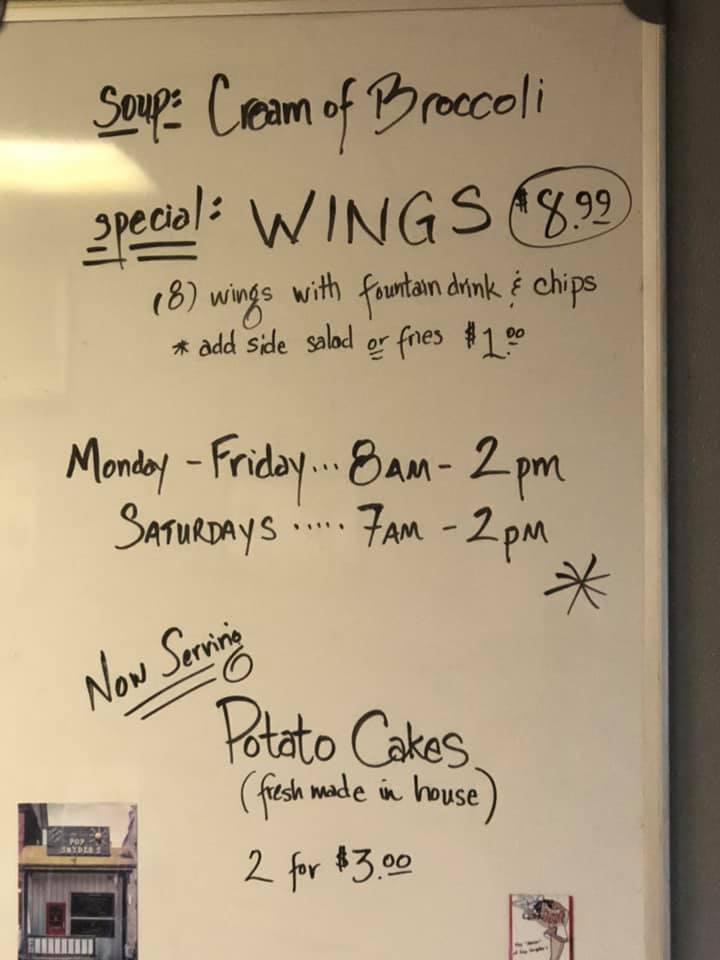 Soup: Cream of Broccoli
special: WINGS $8.99
(8) wings with fountain drink & chips
* add side salad or fries $1.00
Monday - Friday... 8AM - 2pm
SATURDAYS ..... 7AM - 2pm
*
Now Serving
Potato Cakes
(fresh made in house)
2 for $3.00
POP
SNYDER'S